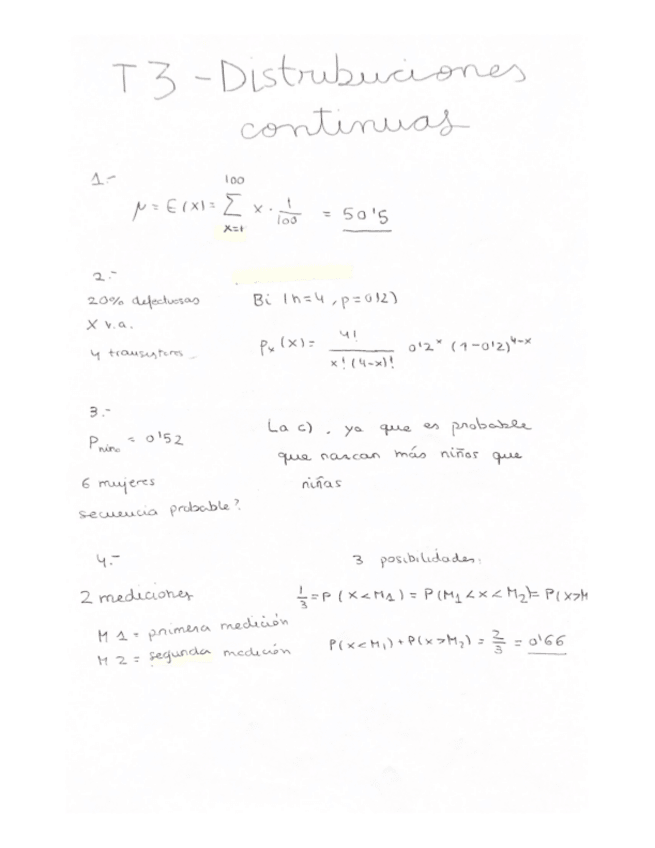 T3 - Distribuciones
continuas
1.-
μ = E(x) = ∑_{x=1}^{100} x · 1/100 = 50'5
2.-
20% defectuosas
X v.a.
4 transistores
Bi (n=4, p=0'2)
Pₓ(x) = 4!/(x!(4-x)!) 0'2ˣ (1-0'2)⁴⁻ˣ
3.-
P_niño = 0'52
6 mujeres
secuencia probable?
La c), ya que es probable
que nazcan más niños que
niñas
4.-
2 mediciones
M1 = primera medición
M2 = segunda medición
3 posibilidades:
1/3 = P(x<M₁) = P(M₁<x<M₂) = P(x>M
P(x<M₁) + P(x>M₂) = 2/3 = 0'66